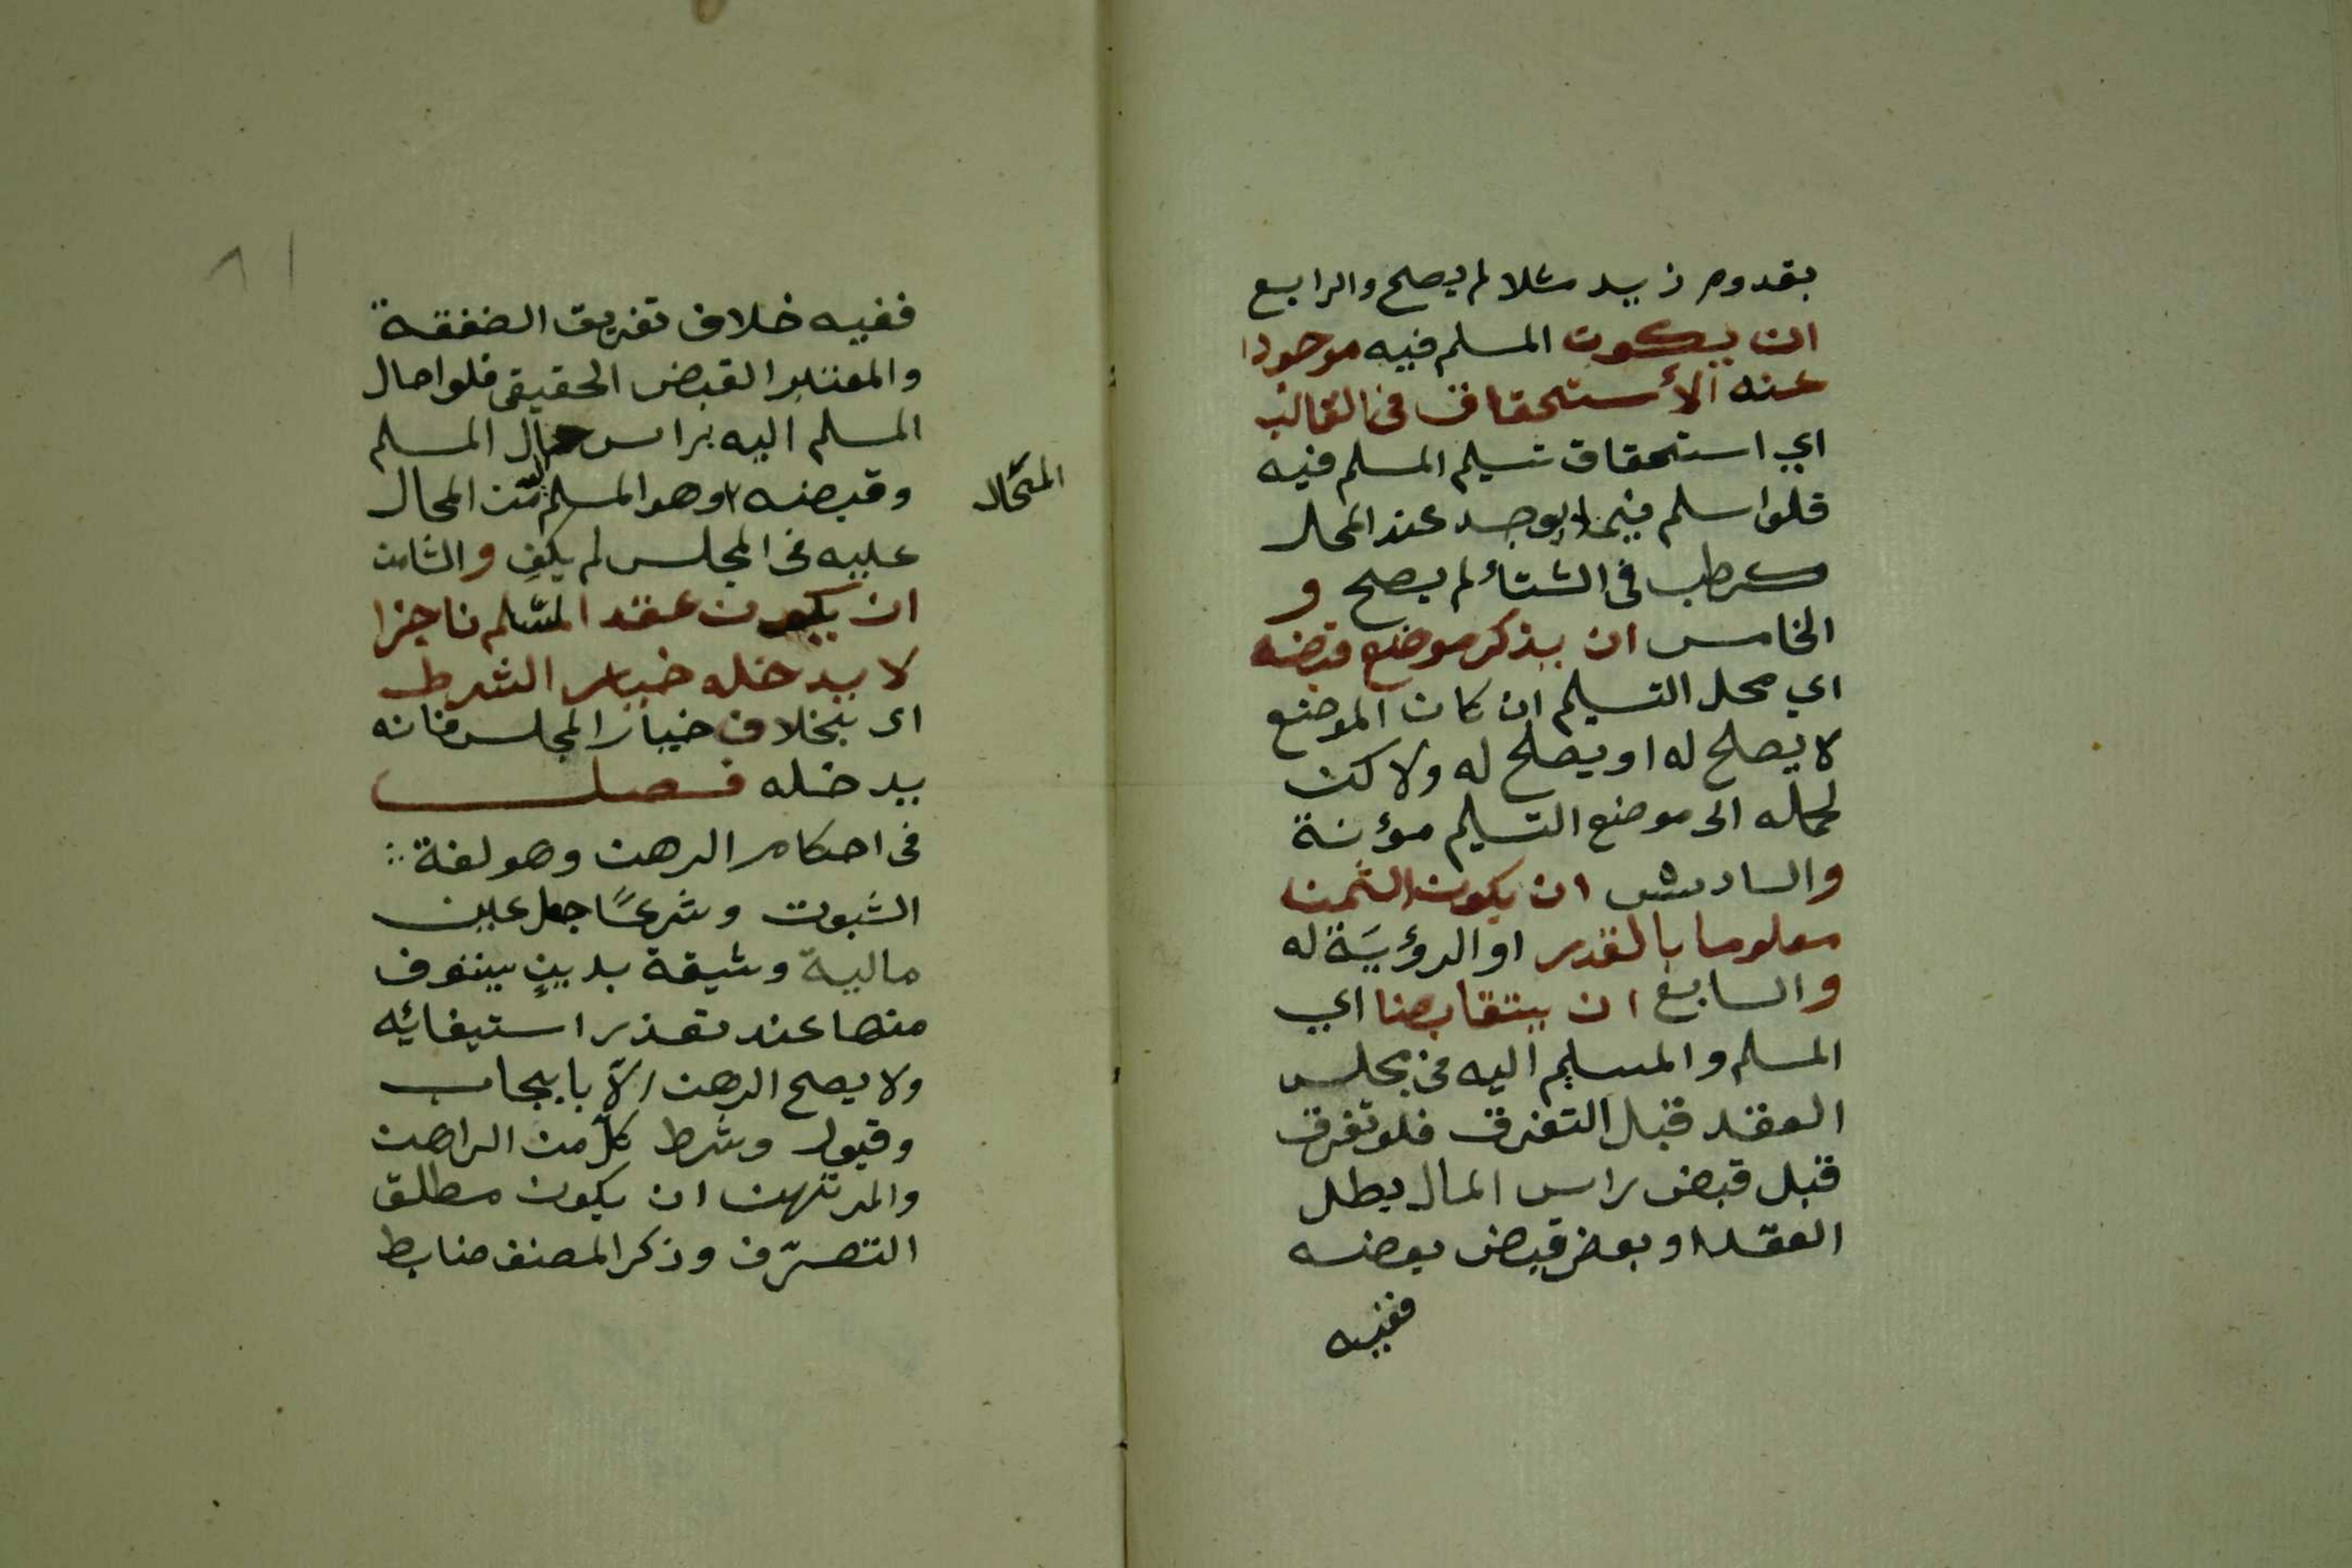 بقدوم زيد مثلا لم يصح والرابع
ان يكون المسلم فيه موجودا
عند الأستحقاق في الغالب
اي استحقاق تسليم المسلم فيه
فلو اسلم فيما لا يوجد عند المحل
كرطب في الشتأ لم يصح و
الخامس ان يذكر موضع قبضه
اي محل التسليم ان كان الموضع
لا يصلح له او يصلح له ولاكن
لحمله الى موضع التسليم مؤنة
والسادس ان يكون الثمن
معلوما بالقدر او الرؤية له
والسابع ان يتقابضا اي
المسلم والمسلم اليه في مجلس
العقد قبل التفرق فلو تفرق
قبل قبض راس المال بطل
العقد او بعد قبض بعضه
ففيه
ففيه خلاف تفريق الصفقة
والمعتبر القبض الحقيقي فلو احال
المسلم اليه براس مال المسلم
وقبضه وهو المسلم اليه من المحال
المحتال
عليه في المجلس لم يكفِ والثامن
ان يكون عقد المسلم ناجزا
لا يدخله خيار الشرط
اى بخلاف خيار المجلس فانه
يدخله فصل
في احكام الرهن وهو لغة
الثبوت وشرعًا جعل عين
مالية وثيقة بدينٍ يستوف
منها عند تعذر استيفائه
ولا يصح الرهن الّا بايجاب
وقبول وشرط كلّ من الراهن
والمرتهن ان يكون مطلق
التصرّف وذكر المصنف ضابط
٨١